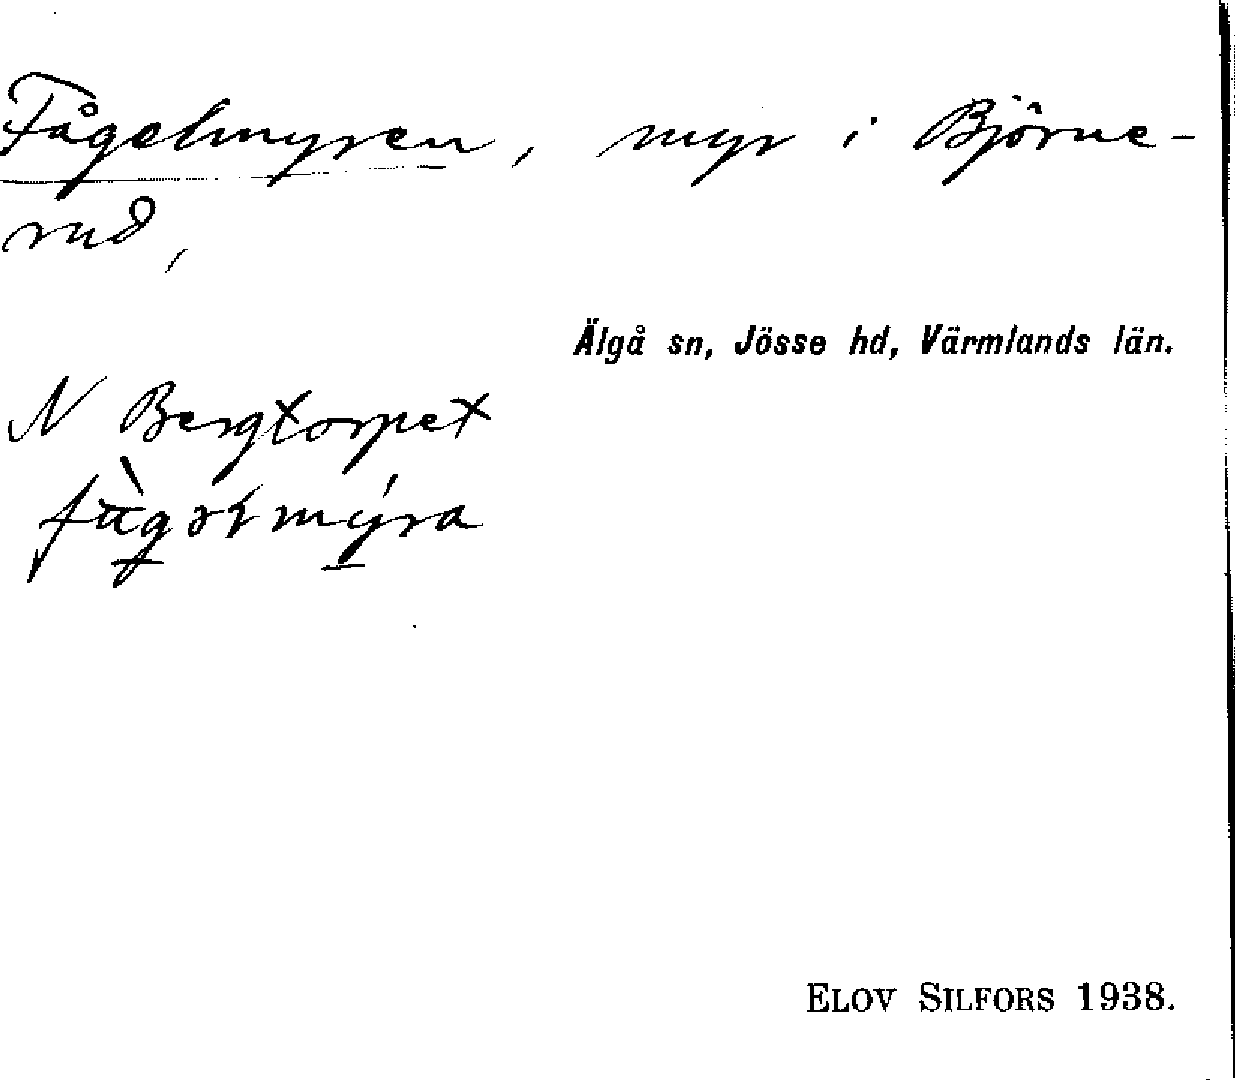 Fågelmyren, myr i Björne-
rud,
Älgå sn, Jösse hd, Värmlands län.
N Bergtorpet
ELOV SILFORS 1938.